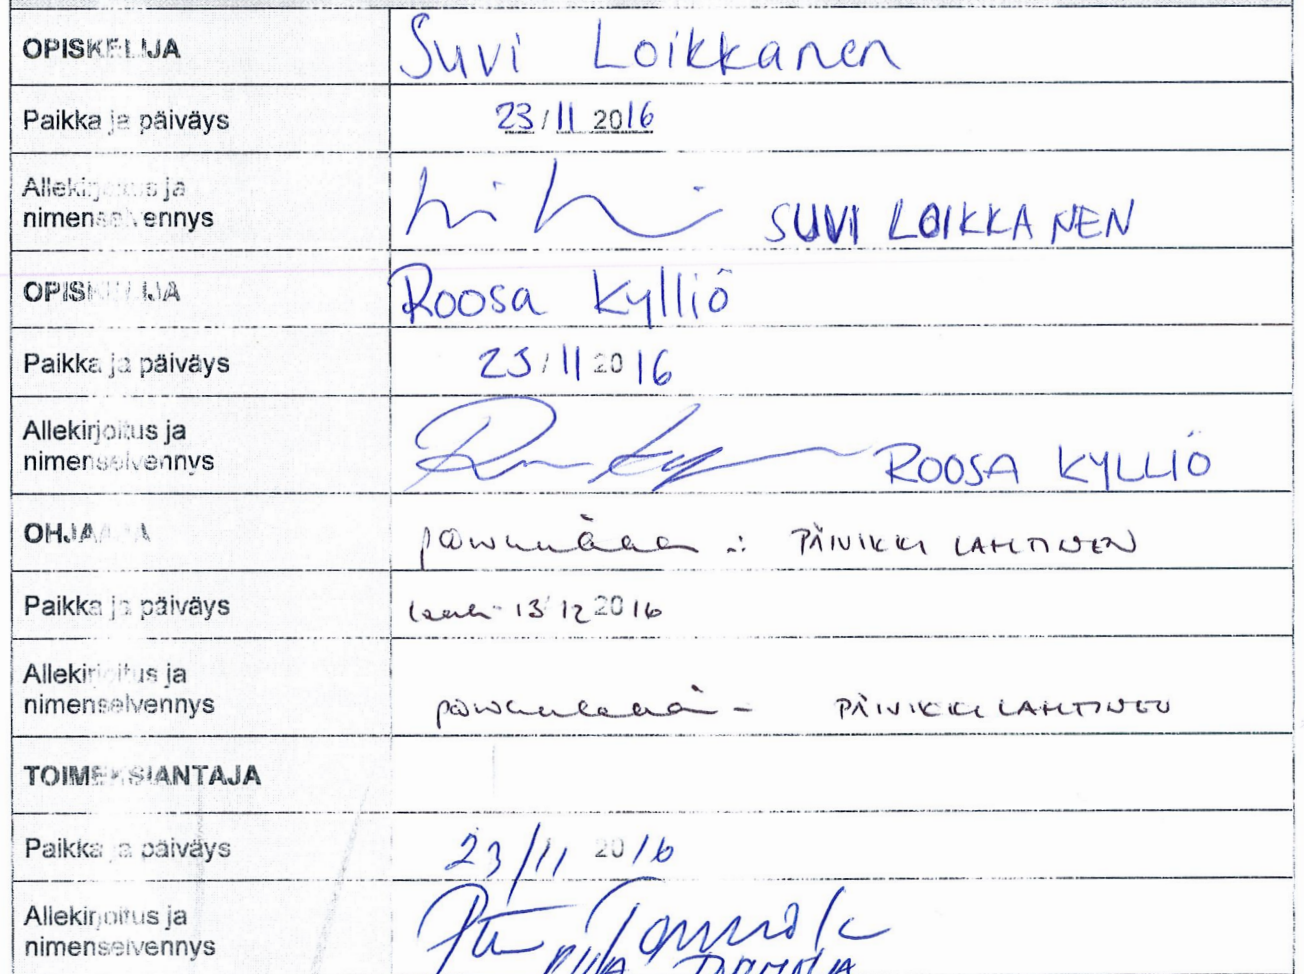 OPISKELIJA Suvi Loikkanen
Paikka ja päiväys 23/11 2016
Allekirjoitus ja
nimenselvennys SUVI LOIKKANEN
OPISKELIJA Roosa Kylliö
Paikka ja päiväys 23/11 2016
Allekirjoitus ja
nimenselvennys ROOSA KYLLIÖ
OHJAAJA PÄIVIKKI LAHTINEN
Paikka ja päiväys 13 12 2016
Allekirjoitus ja
nimenselvennys PÄIVIKKI LAHTINEN
TOIMEKSIANTAJA
Paikka ja päiväys 23/11 2016
Allekirjoitus ja
nimenselvennys